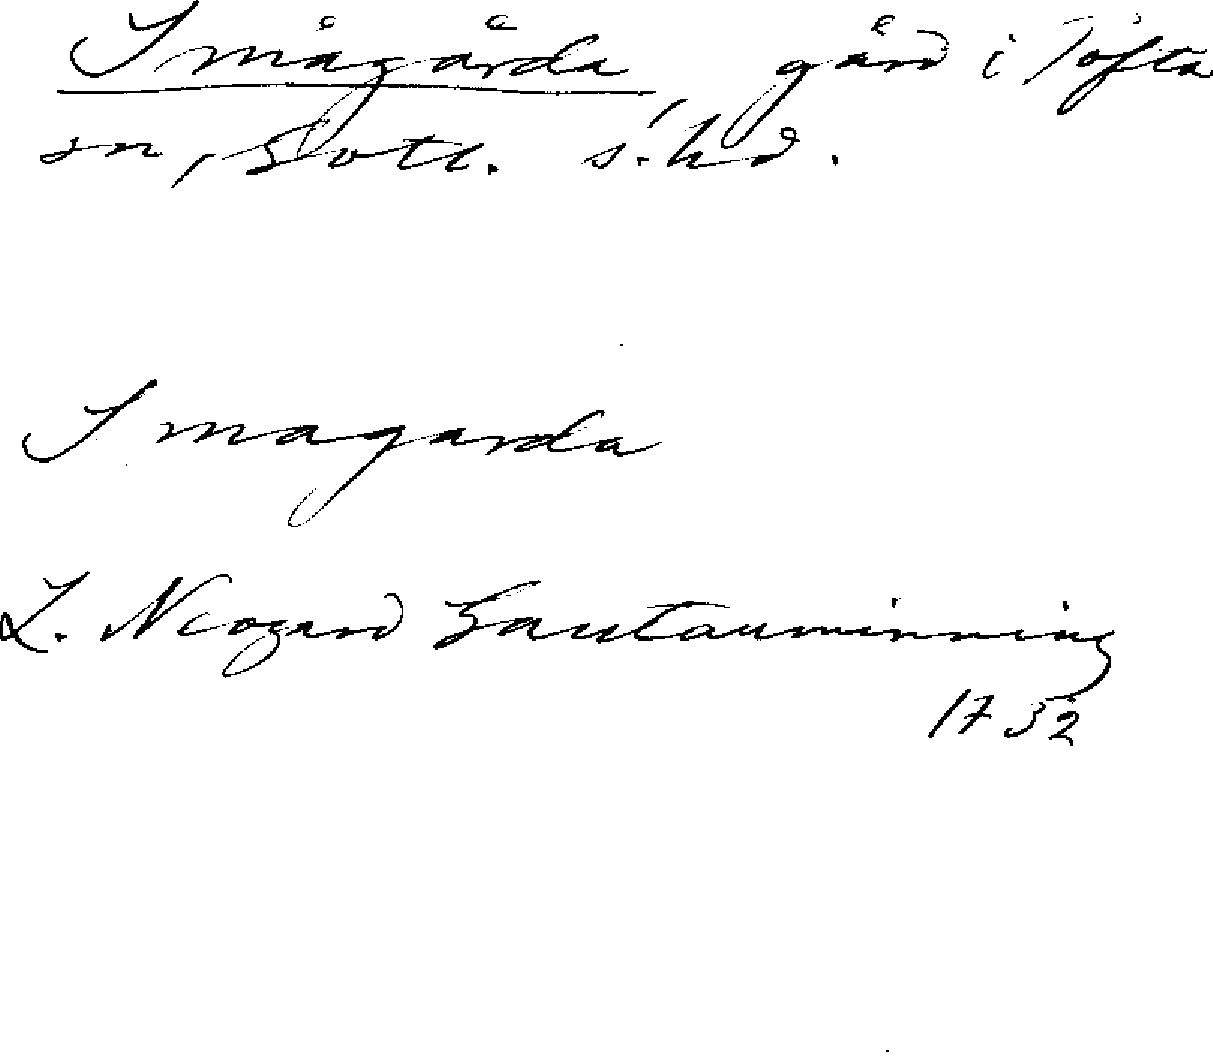 Smågårda gård i Tofta
sn, Gotl. s. hd.
Smagarda
L. Neogard Gautauminning
1732